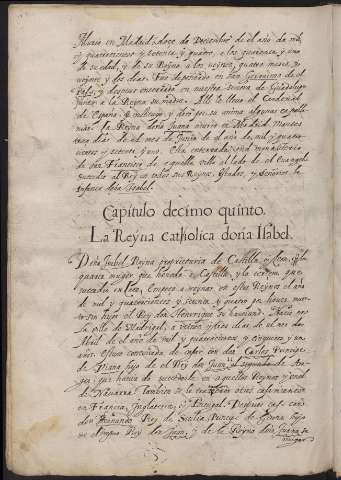 Murio en Madrid a doze de Deziembre de el año de mil
y quatrocientos y setenta y quatro, a los quarenta y uno
de su edad, y de su Reyno a los veynte, quatro meses, y
veynte y dos dias. Fue depositado en San Geronimo de el
Paso, y despues enterrado en nuestra Señora de Guadalupe
junto a la Reyna su madre.
de España
La Reyna doña Juana murio en Madrid
treze dias de el mes de Junio de el año de mil y quatro
cientos y setenta y uno. Esta enterrada en el monasterio
de san Francisco de aquella villa al lado de el Euangelio
sucedio al Rey en todos sus Reynos, Estados, y Señorios la
Infanta doña Isabel.
Capitulo decimo quinto.
La Reyna catholica doña Isabel.
Doña Isabel Reyna proprietaria de Castilla, y Leon, y la
quarta muger que heredo a Castilla, y la tercera que
sucedio en Leon. Empeço a reynar en estos Reynos el año
de mil y quatrocientos y setenta y quatro
sin hijos el Rey don Henrrique su hermano. Nacio en
la villa de Madrigal, a veynte y tres dias de el mes de
Abril de el año de mil y quatrocientos y cinquenta y un
años. Estuvo concertada de casar con don Carlos Principe
de Viana hijo de el Rey don Juan el segundo de Ara
gon que havia de sucederle en aquellos Reynos y en el de
Navarra. Tambien se le trataron otros casamientos
en Francia, Inglaterra, y Portugal. Despues caso con
don Fernando Rey de Sicilia Principe de Girona hijo
de el mismo Rey don Juan, y de la Reyna doña Juana su
muger